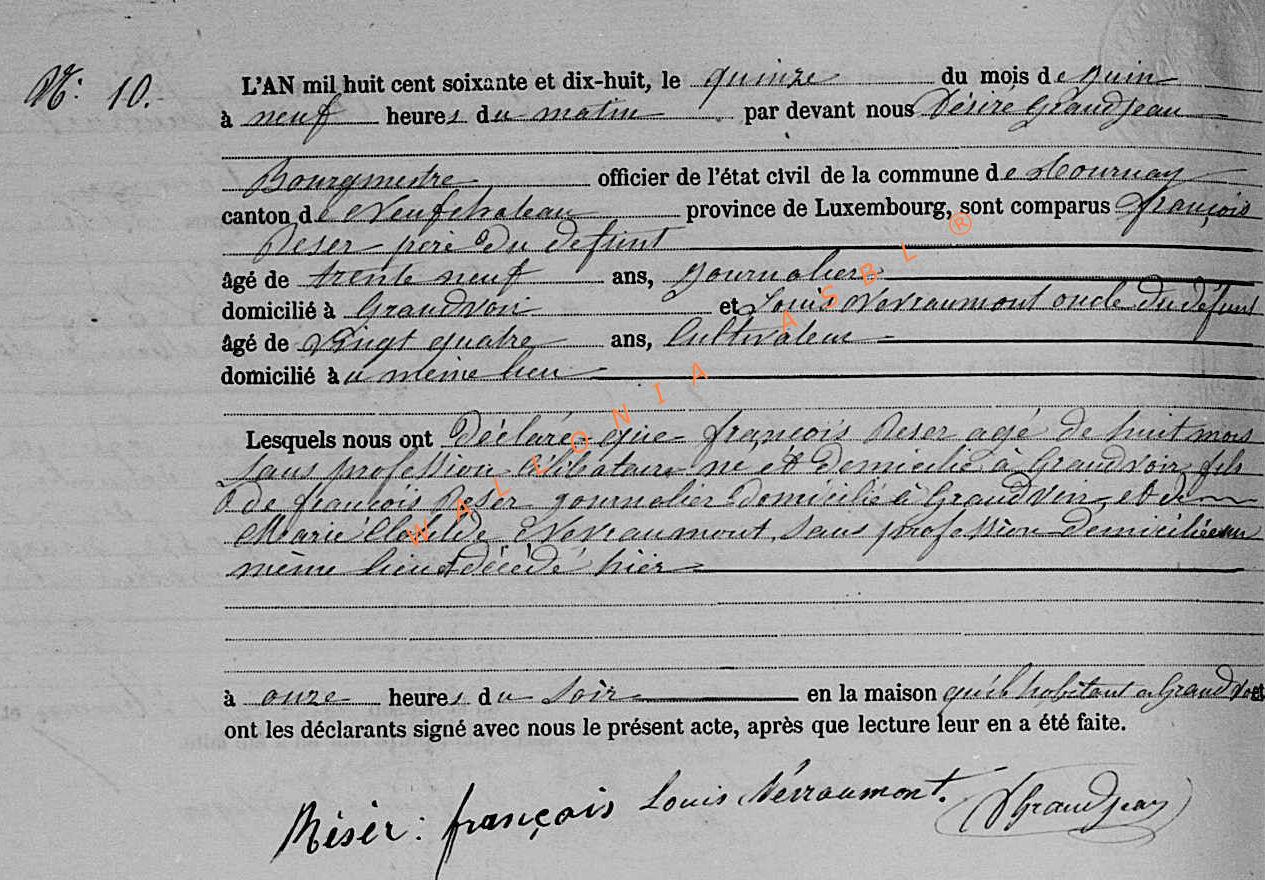 N: 10.
L'AN mil huit cent soixante et dix-huit, le quinze du mois de Juin
à neuf heures du matin par devant nous Désiré Grandjean
Bourgmestre officier de l'état civil de la commune de Tournay
canton de Neufchateau province de Luxembourg, sont comparus françois
Reser père du defunt
âgé de trente neuf ans, Journalier
domicilié à Grandvoir et Louis Nevraumont oncle du défunt
âgé de vingt quatre ans, Cultivateur
domicilié au même lieu
Lesquels nous ont déclaré que françois Reser agé de huit mois
sans profession célibataire né et domicilié à Grandvoir, fils
de françois Reser journalier domicilié à Grandvoir, et de
Marie Clotilde Nevraumont, sans profession domiciliée au
même lieu et décédé hier
à onze heures du soir en la maison qu'il habitant a Grandvoir et
ont les déclarants signé avec nous le présent acte, après que lecture leur en a été faite.
Réser: françois Louis Névraumont. DGrandjean
WALLONIA ASBL ®